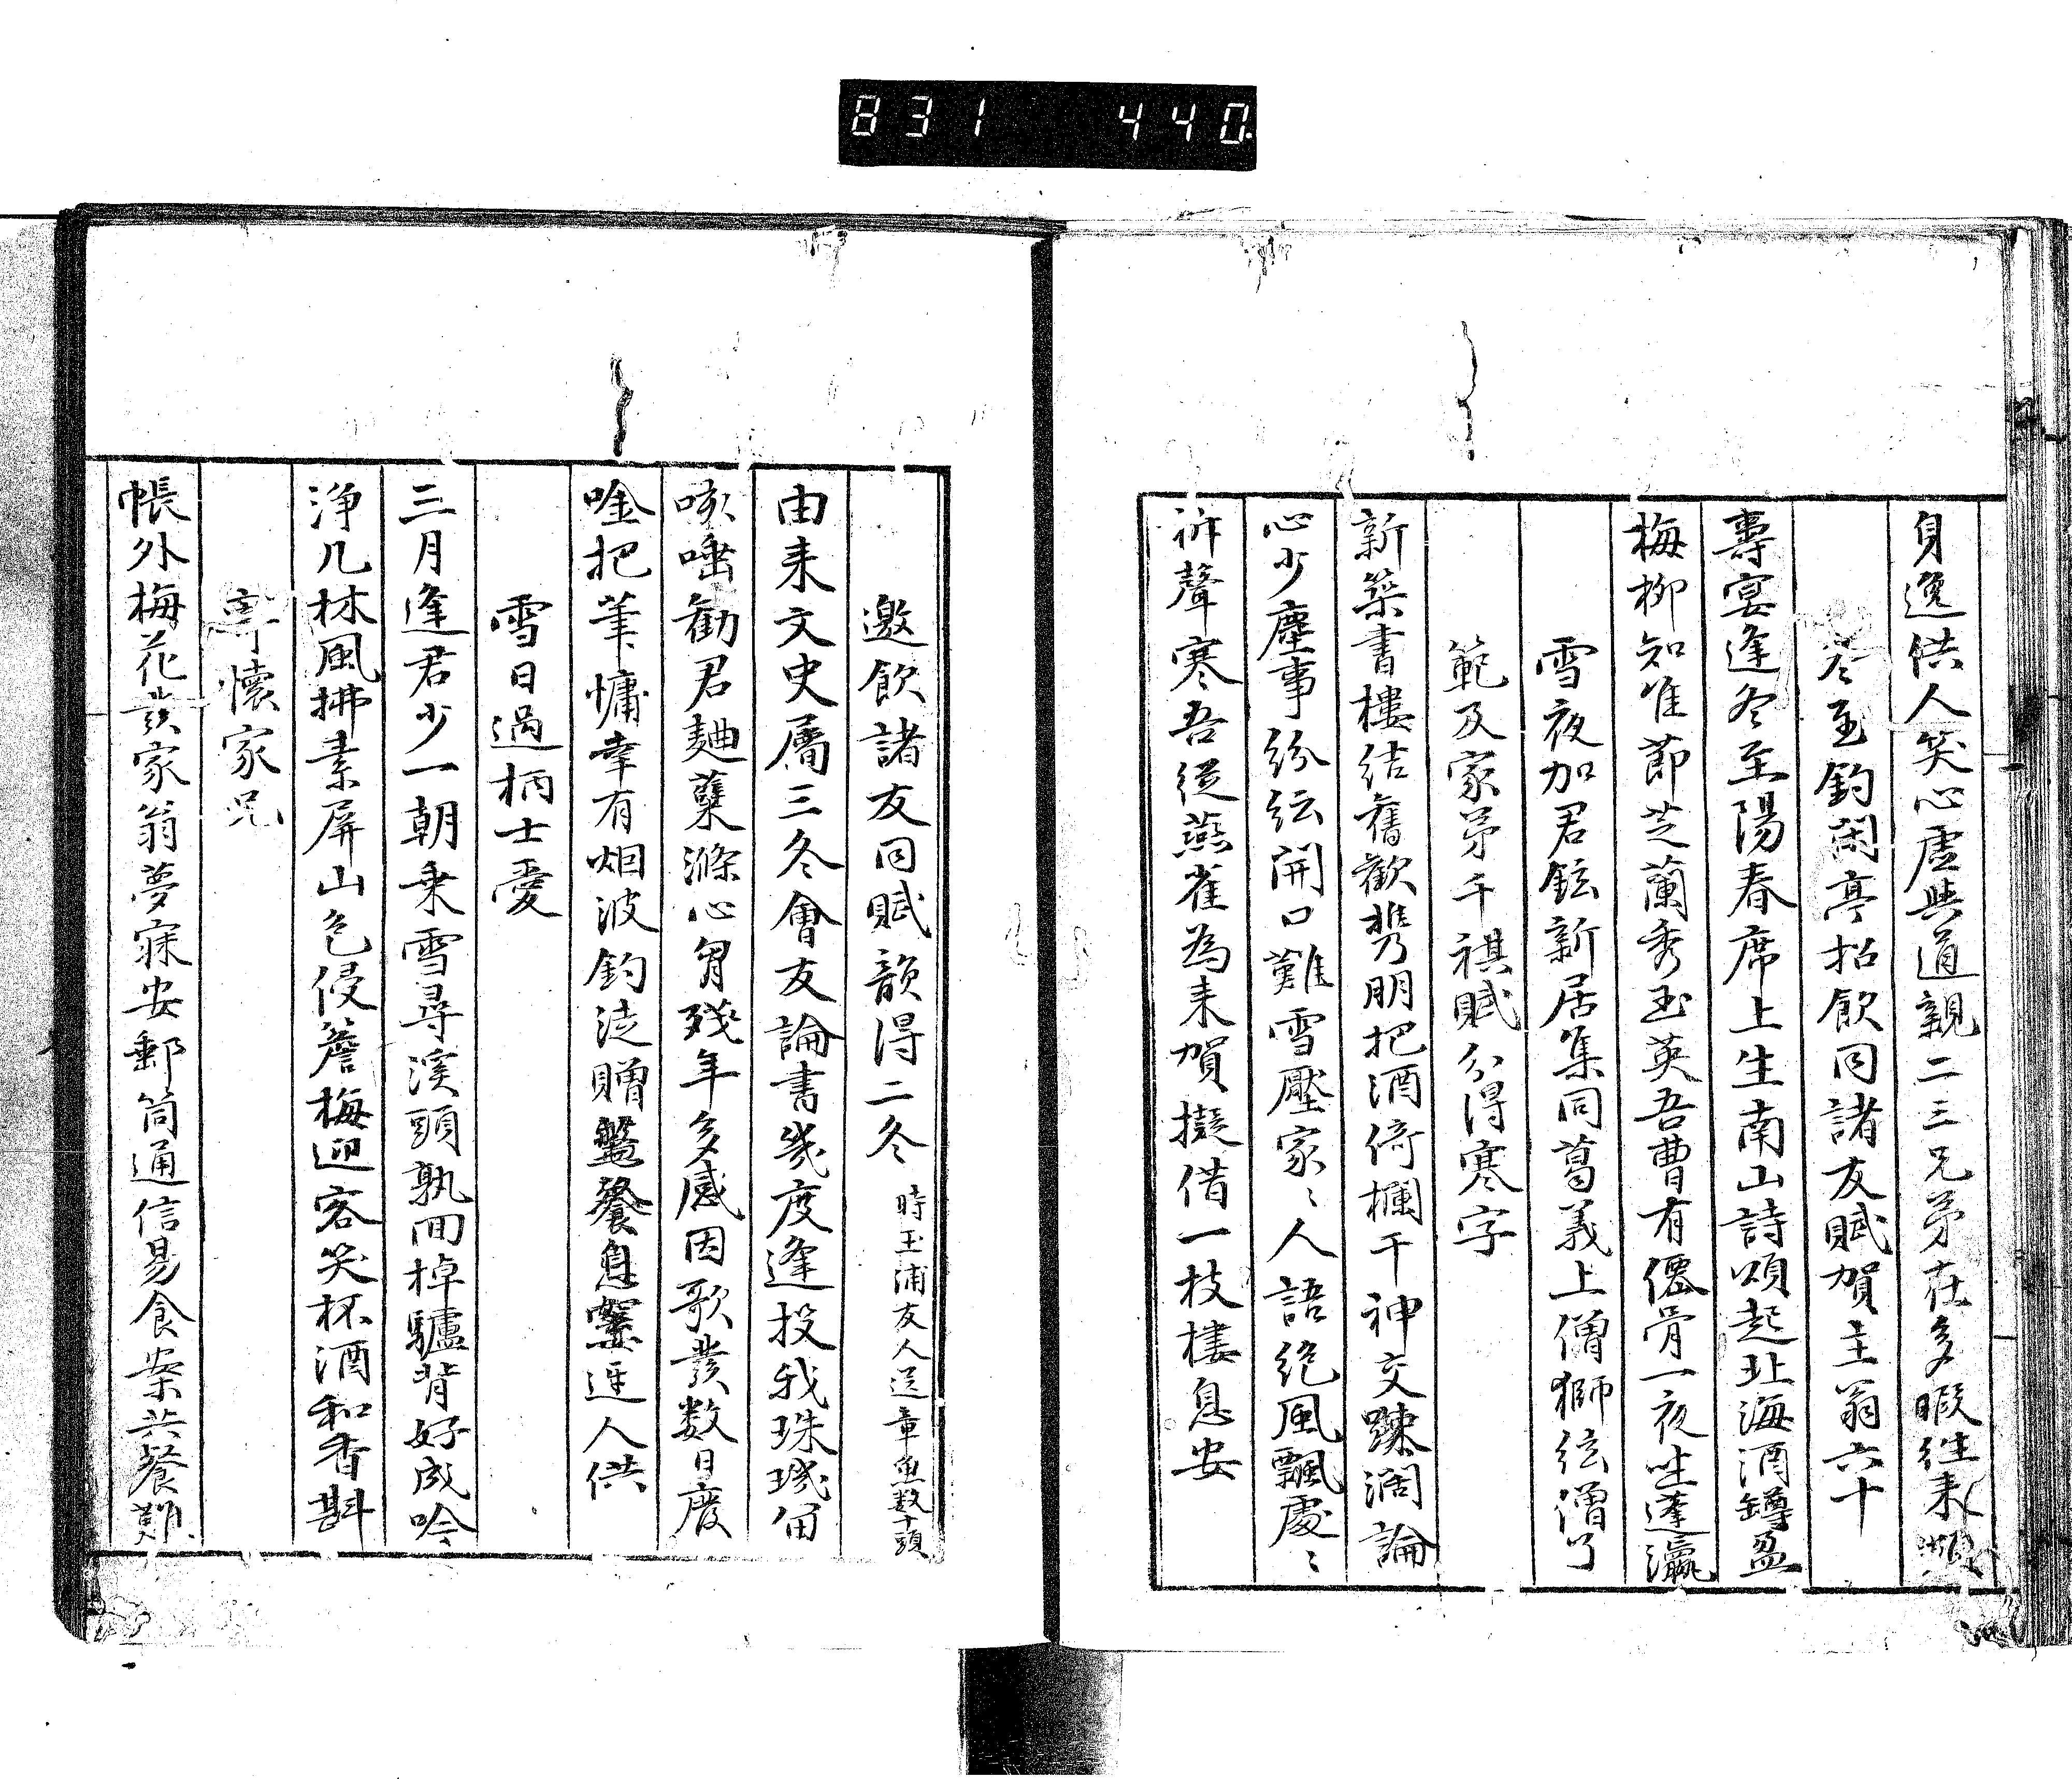 831 440.
身逸供人笑心虚與道親二三兄弟在多暇往来頻
冬至釣閑亭招飲同諸友賦賀主翁六十
壽宴逢冬至陽春席上生南山詩頌起北海酒罇盈
梅柳知准節芝蘭秀玉英吾曹有僊骨一夜坐蓬瀛
雪夜加君鉉新居集同葛義上僧獅絃僧了
範及家弟千祺賦分得寒字
新築書樓結舊歡携朋把酒倚欄干神交踈濶論
心少塵事紛紜開口難雪壓家〻人語絶風飄處〻
柝聲寒吾從燕雀為来賀擬借一枝棲息安
邀飲諸友同賦韻得二冬 時玉浦友人送章魚数十頭
由来文史属三冬會友論書幾度逢投我珠璣留
咳唾勸君麯糵滌心胷殘年多感因歌發数日廢
唫把筆慵幸有烟波釣徒贈盤餐急寄逕人供
雪日過柄士愛
三月逢君少一朝乗雪尋溪頭孰囬棹驢背好成吟
浄几林風拂素屏山色侵簷梅迎客笑杯酒和香斟
寄懷家兄
帳外梅花發家翁夢寐安郵筒通信易食案共餐難